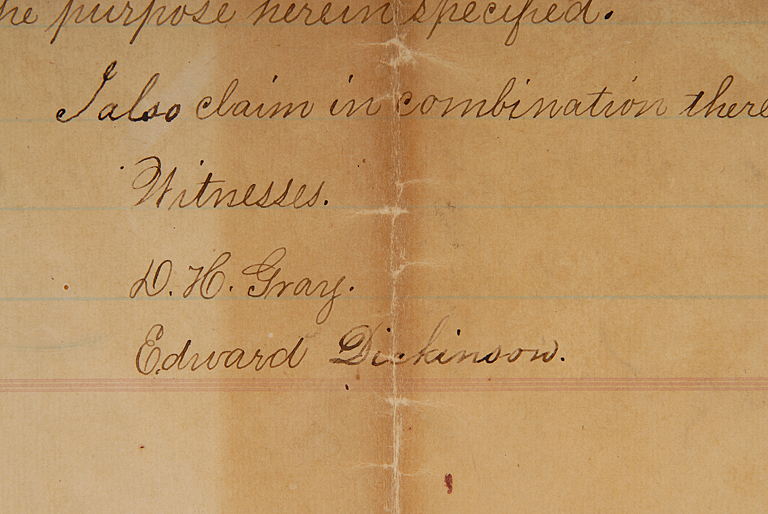 he purpose herein specified.
I also claim in combination there
Witnesses.
D. H. Gray.
Edward Dickinson.